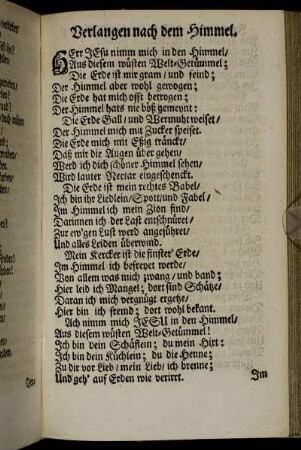 Verlangen nach dem Himmel.
HErr JEsu nimm mich in den Himmel/
Aus diesem wüsten Welt-Getümmel;
Die Erde ist mir gram/ und feind;
Der Himmel aber wohl gewogen;
Die Erde hat mich offt betrogen;
Der Himmel hats nie böß gemeynt:
Die Erde Gall/ und Wermuht weiset/
Der Himmel mich mit Zucker speiset.
Die Erde mich mit Eßig tränckt/
Daß mir die Augen über gehen/
Werd ich dich schöner Himmel sehen/
Wird lauter Nectar eingeschenckt.
Die Erde ist mein rechtes Babel/
Ich bin ihr Liedlein/ Spott/ und Fabel/
Im Himmel ich mein Zion find/
Darinnen ich der Last entschnüret/
Zur ew'gen Lust werd angeführet/
Und alles Leiden überwind.
Mein Kercker ist die finster' Erde/
Im Himmel ich befreyet werde/
Von allem was mich zwang/ und band;
Hier leid ich Mangel; dort sind Schätze/
Daran ich mich vergnügt ergetze/
Hier bin ich fremd; dort wohl bekant.
Ach nimm mich JESU in den Himmel/
Aus diesem wüsten Welt-Getümmel!
Ich bin dein Schäflein; du mein Hirt:
Ich bin dein Küchlein; du die Henne;
Zu dir vor Lieb/ mein Lieb/ ich brenne;
Und geh' auf Erden wie verirrt.
Im